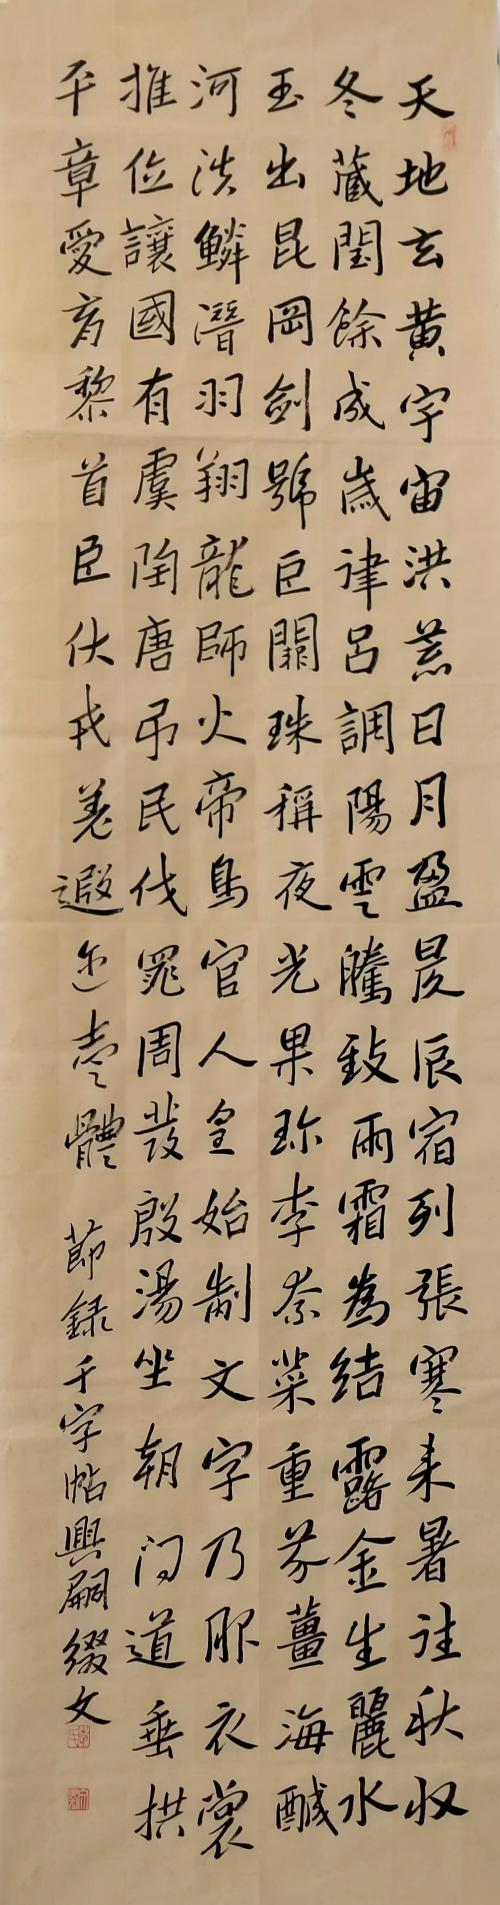 天地玄黄宇宙洪荒日月盈昃辰宿列張寒来暑往秋收
冬藏閏餘成歲律呂調陽雲騰致雨霜為結露金生麗水
玉出昆岡劍號巨闕珠稱夜光果珎李柰菜重芥薑海醎
河淡鱗潛羽翔龍師火帝鳥官人皇始制文字乃服衣裳
推位讓國有虞陶唐弔民伐罪周發殷湯坐朝问道垂拱
平章愛育黎首臣伏戎羌遐迩壹體 節録千字帖興嗣綴文